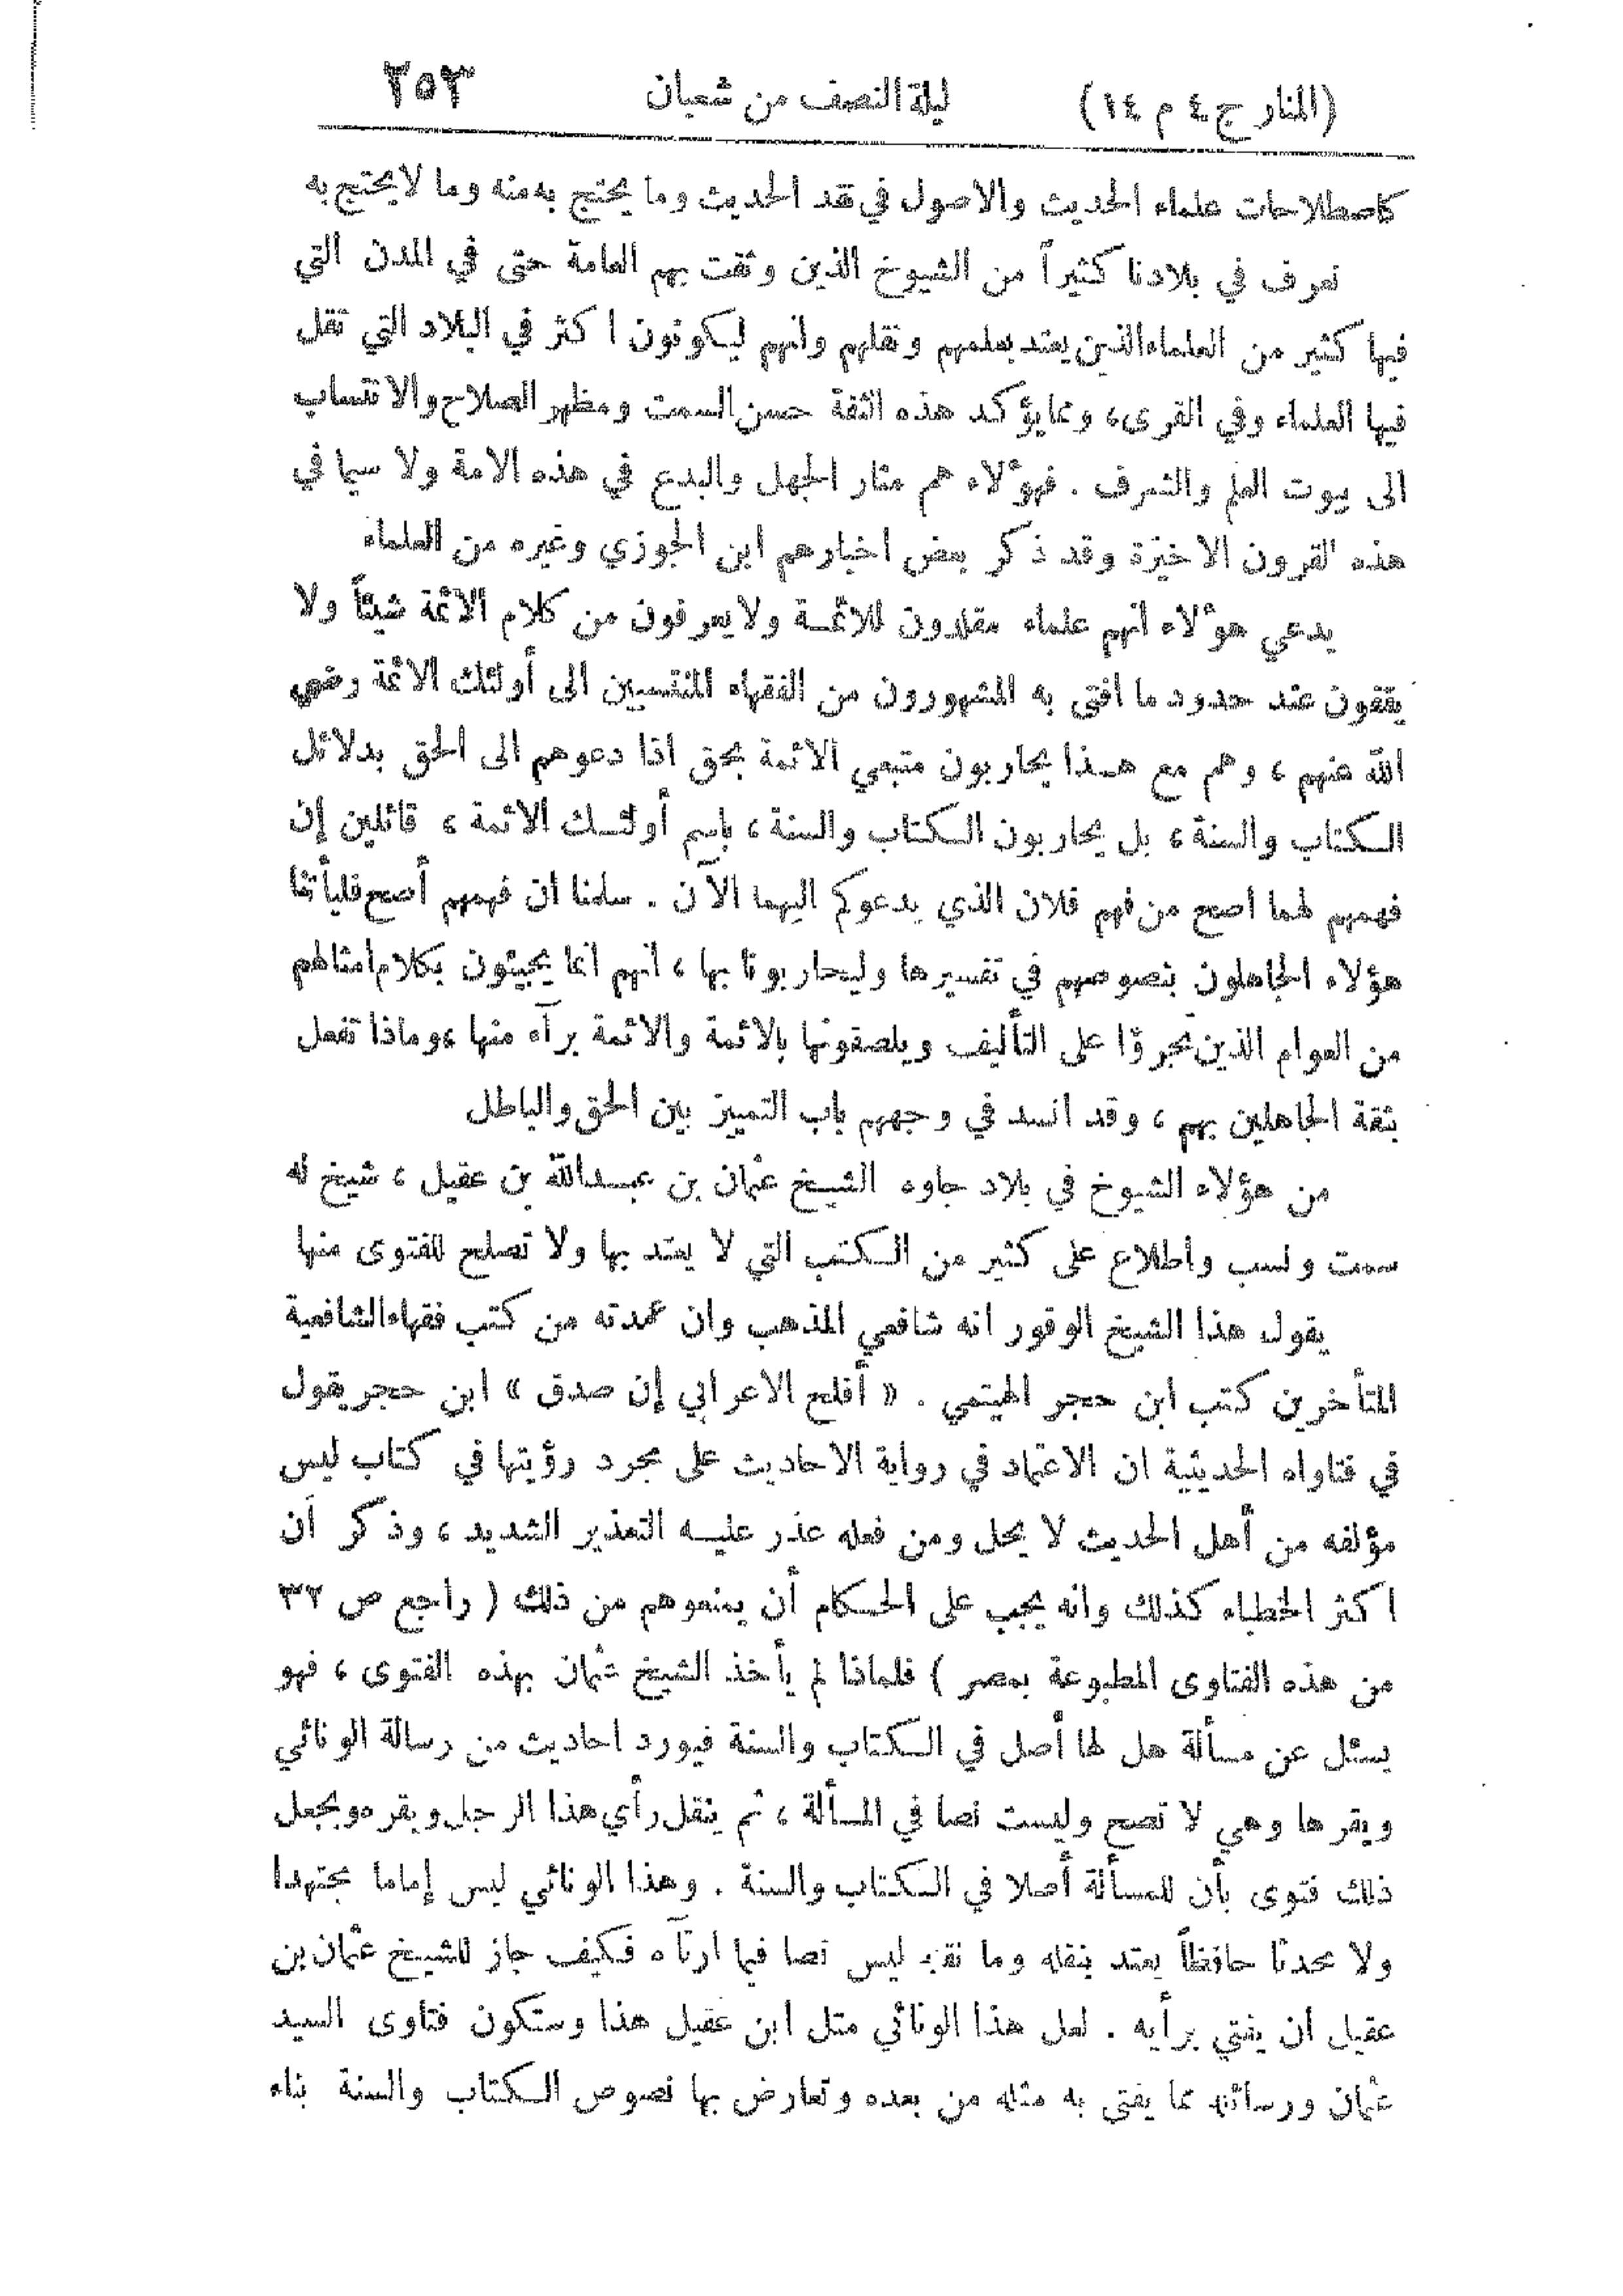 (المنار ج ٤ م ١٤) ليلة النصف من شعبان ٢٥٣
كاصطلاحات علماء الحديث والاصول في نقد الحديث وما يحتج به منه وما لا يحتج به
نعرف في بلادنا كثيراً من الشيوخ الذين وثقت بهم العامة حتى في المدن التي
فيها كثير من العلماء الذين يعتد بعلمهم ونقلهم وانهم ليكونون اكثر في البلاد التي تقل
فيها العلماء وفي القرى، ومما يؤكد هذه الثقة حسن السمت ومظهر الصلاح والانتساب
الى بيوت العلم والشرف . فهؤلاء هم مثار الجهل والبدع في هذه الامة ولا سيما في
هذه القرون الاخيرة وقد ذكر بعض اخبارهم ابن الجوزي وغيره من العلماء
يدعي هؤلاء انهم علماء مقلدون للائمة ولا يعرفون من كلام الائمة شيئاً ولا
يقفون عند حدود ما افتى به المشهورون من الفقهاء المنتسبين الى أولئك الائمة رضي
الله عنهم ، وهم مع هذا يحاربون متبعي الائمة بحق اذا دعوهم الى الحق بدلائل
الكتاب والسنة ، بل يحاربون الكتاب والسنة ، باسم أولئك الائمة ، قائلين إن
فهمهم لهما اصح من فهم فلان الذي يدعوكم اليهما الآن . سلمنا ان فهمهم أصح فليأتنا
هؤلاء الجاهلون بنصوصهم في تفسيرها وليحاربونا بها ، انهم انما يجيئون بكلام امثالهم
من العوام الذين تجرؤا على التأليف ويلصقونها بالائمة والائمة برآء منها ، وماذا تفعل
بثقة الجاهلين بهم ، وقد انسد في وجههم باب التمييز بين الحق والباطل
من هؤلاء الشيوخ في بلاد جاوه الشيخ عثمان بن عبدالله بن عقيل ، شيخ له
سمت ونسب واطلاع على كثير من الكتب التي لا يعتد بها ولا تصلح للفتوى منها
يقول هذا الشيخ الوقور انه شافعي المذهب وان عمدته من كتب فقهاء الشافعية
المتأخرين كتب ابن حجر الهيتمي . « أفلح الاعرابي إن صدق » ابن حجر يقول
في فتاواه الحديثية ان الاعتماد في رواية الاحاديث على مجرد رؤيتها في كتاب ليس
مؤلفه من أهل الحديث لا يحل ومن فعله عذر عليه التعذير الشديد ، وذكر أن
اكثر الخطباء كذلك وانه يجب على الحكام أن يمنعوهم من ذلك ( راجع ص ٣٢
من هذه الفتاوى المطبوعة بمصر ) فلماذا لم يأخذ الشيخ عثمان بهذه الفتوى ، فهو
يسئل عن مسألة هل لها أصل في الكتاب والسنة فيورد احاديث من رسالة الونائي
ويقرها وهي لا تصح وليست نصا في المسألة ، ثم ينقل رأي هذا الرجل ويقره ويجعل
ذلك فتوى بأن للمسألة أصلا في الكتاب والسنة . وهذا الونائي ليس إماما مجتهدا
ولا محدثا حافظاً يعتد بنقله وما نقله ليس نصا فيما ارتآه فكيف جاز للشيخ عثمان بن
عقيل ان يفتي برأيه . لعل هذا الونائي مثل ابن عقيل هذا وستكون فتاوى السيد
عثمان ورسائله مما يفتي به مثله من بعده وتعارض بها نصوص الكتاب والسنة بناء